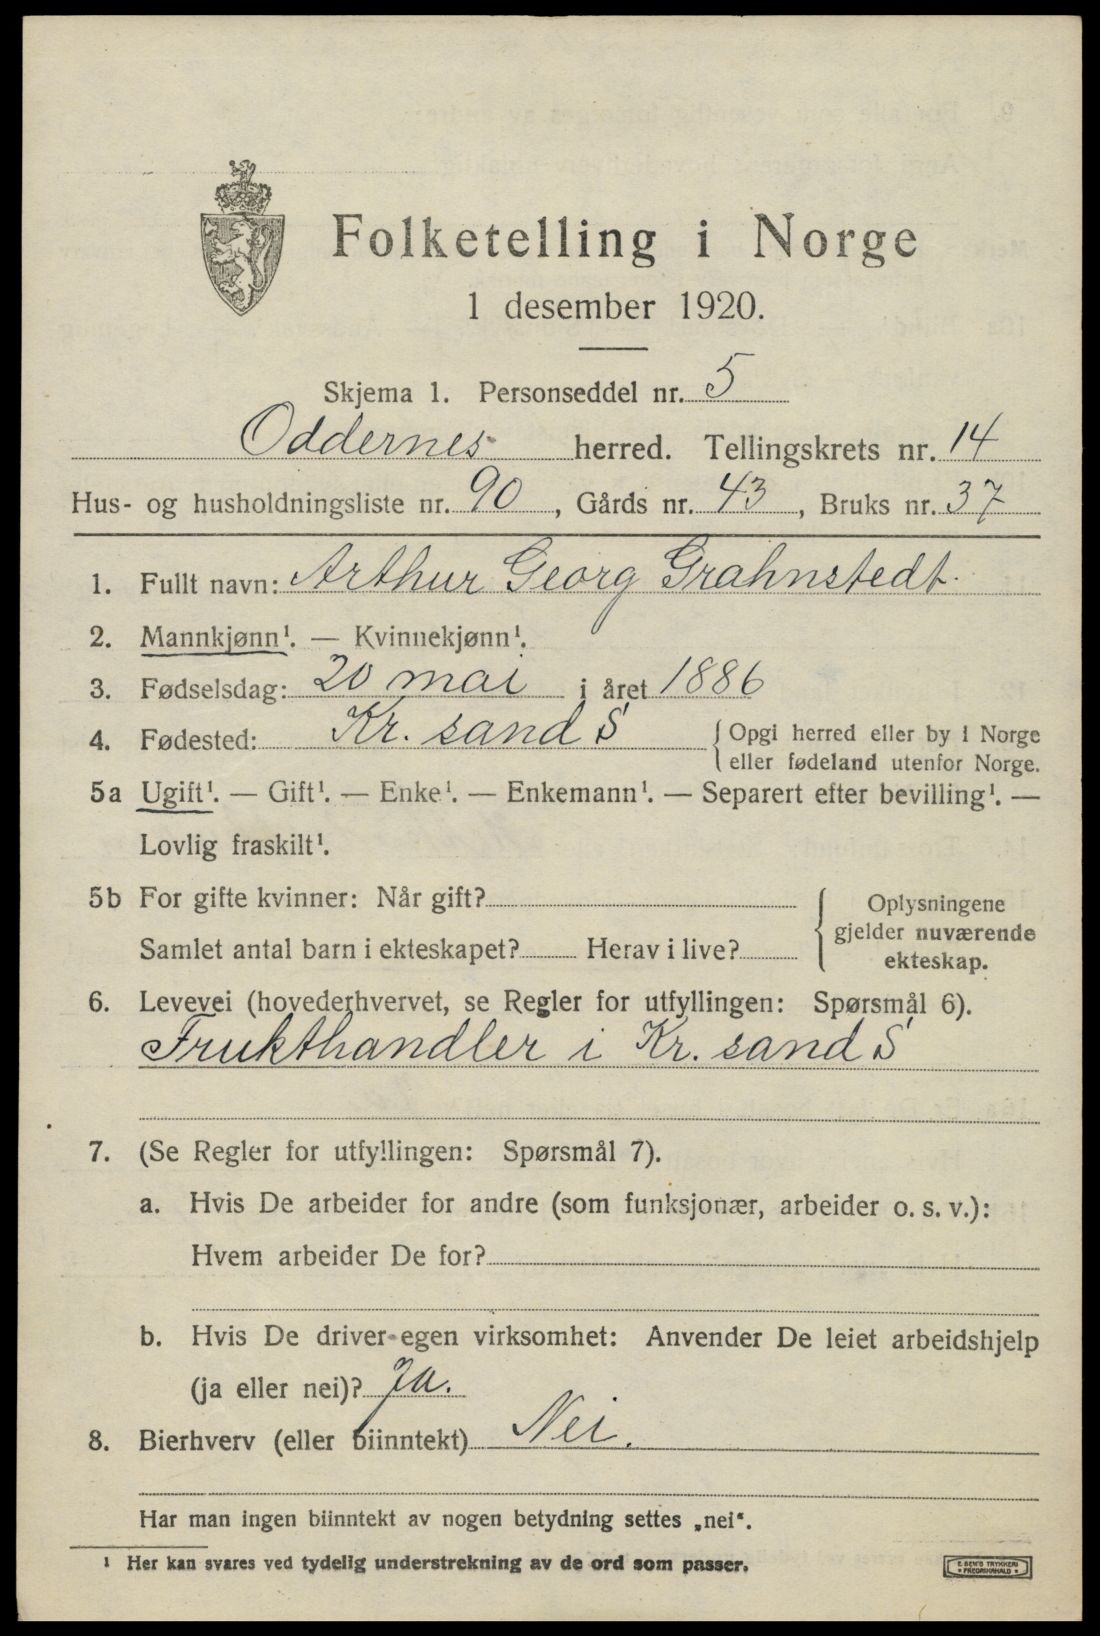 Folketelling i Norge
1 desember 1920.
Skjema 1. Personseddel nr. 5
Oddernes herred. Tellingskrets nr. 14
Hus- og husholdningsliste nr. 90, Gårds nr. 43, Bruks nr. 37
1. Fullt navn: Arthur Georg Grahnstedt.
2. Mannkjønn¹. — Kvinnekjønn¹.
3. Fødselsdag: 20 mai i året 1886
4. Fødested: Kr. sand S
Opgi herred eller by i Norge
eller fødeland utenfor Norge.
5a Ugift¹. — Gift¹. — Enke¹. — Enkemann¹. — Separert efter bevilling¹. —
Lovlig fraskilt¹.
5b For gifte kvinner: Når gift?
Samlet antal barn i ekteskapet? Herav i live?
Oplysningene
gjelder nuværende
ekteskap.
6. Levevei (hovederhvervet, se Regler for utfyllingen: Spørsmål 6).
Frukthandler i Kr. sand S
7. (Se Regler for utfyllingen: Spørsmål 7).
a. Hvis De arbeider for andre (som funksjonær, arbeider o. s. v.):
Hvem arbeider De for?
b. Hvis De driver egen virksomhet: Anvender De leiet arbeidshjelp
(ja eller nei)? Ja.
8. Bierhverv (eller biinntekt) Nei.
Har man ingen biinntekt av nogen betydning settes „nei“.
¹ Her kan svares ved tydelig understrekning av de ord som passer.
E. SEM'S TRYKKERI
FREDRIKSHALD